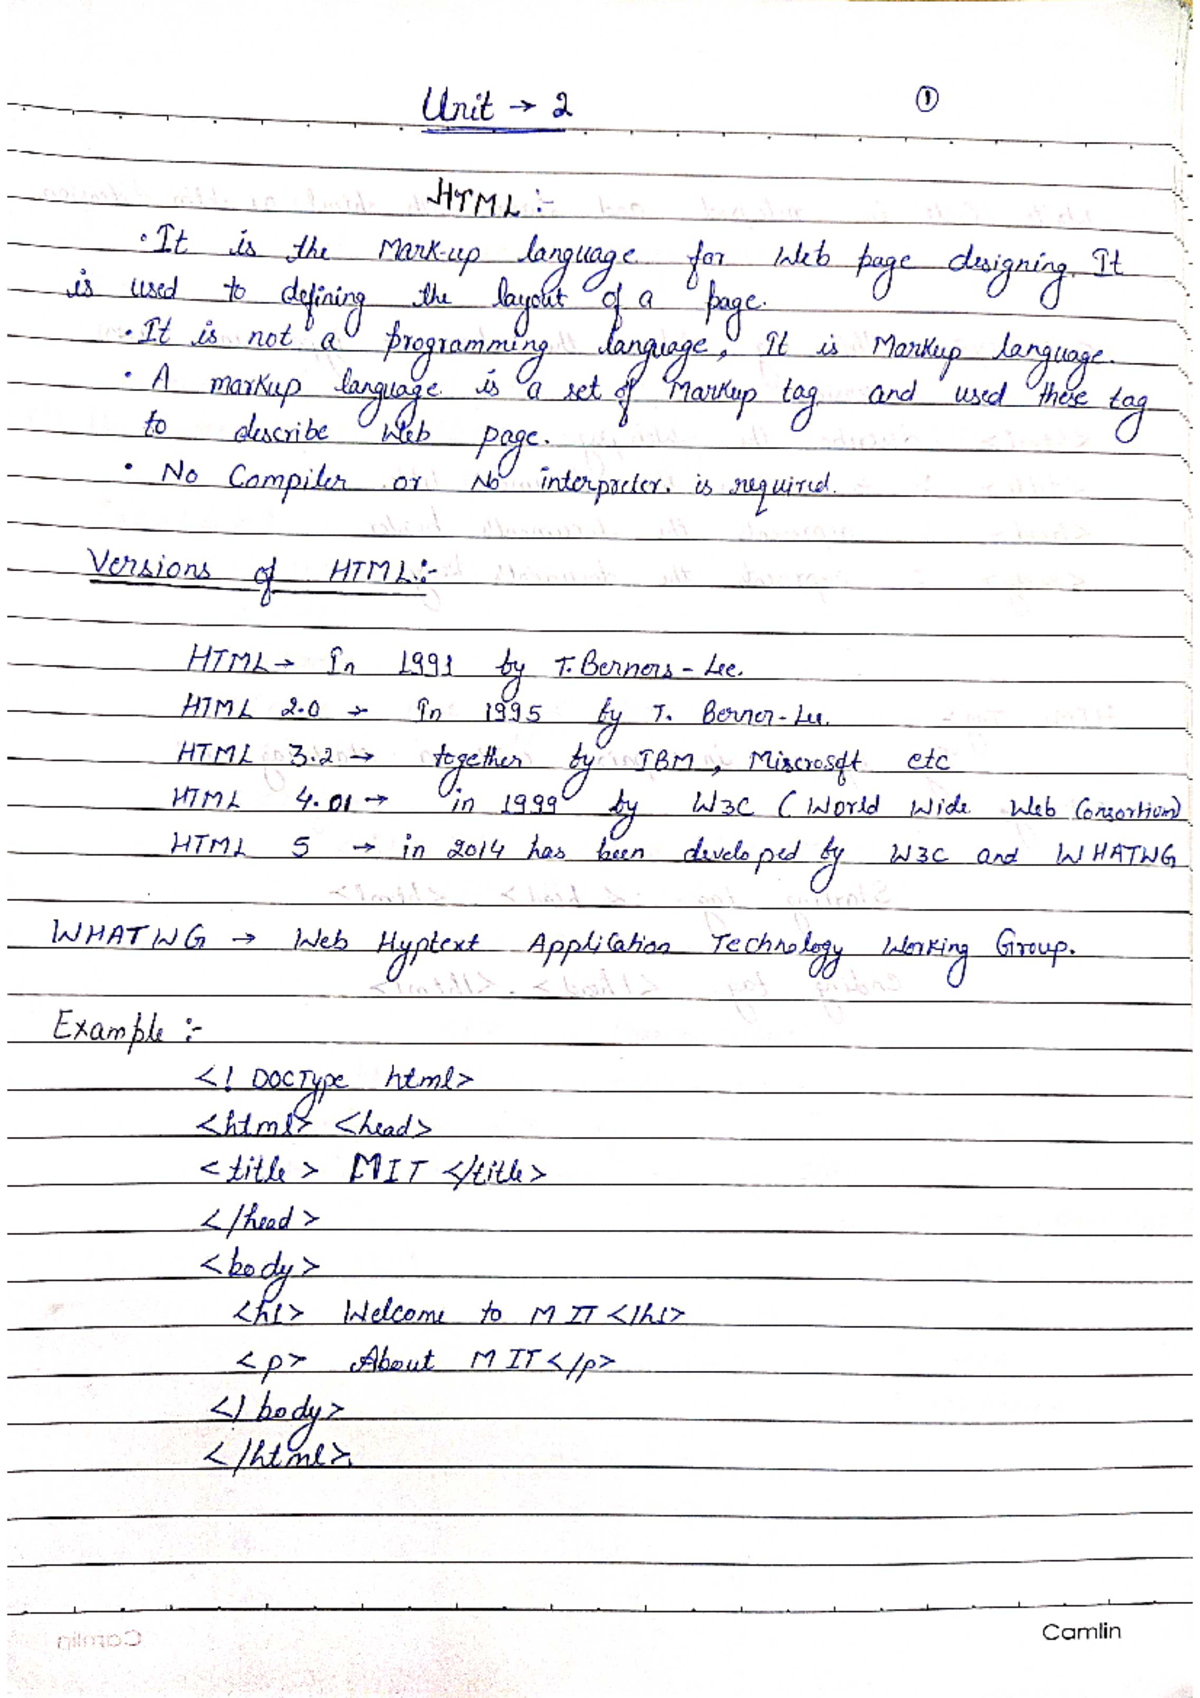 Unit → 2
①
HTML :-
• It is the Mark-up language for Web page designing. It
is used to defining the layout of a page.
• It is not a programming language, It is Markup language.
• A markup language is a set of Markup tag and used these tag
to describe Web page.
• No Compiler or No interpreter. is required.
Versions of HTML:-
HTML → In 1991 by T. Berners-Lee.
HTML 2.0 → In 1995 by T. Berner-Lee.
HTML 3.2 → together by IBM, Miscrosoft etc
HTML 4.01 → in 1999 by W3C (World Wide Web Consortium)
HTML 5 → in 2014 has been developed by W3C and WHATWG
WHATWG → Web Hyptext Application Technology Working Group.
Example :-
<! DOCType html>
<html> <head>
<title> MIT </title>
</head>
<body>
<h1> Welcome to MIT </h1>
<p> About MIT </p>
</body>
</html>.
Camlin